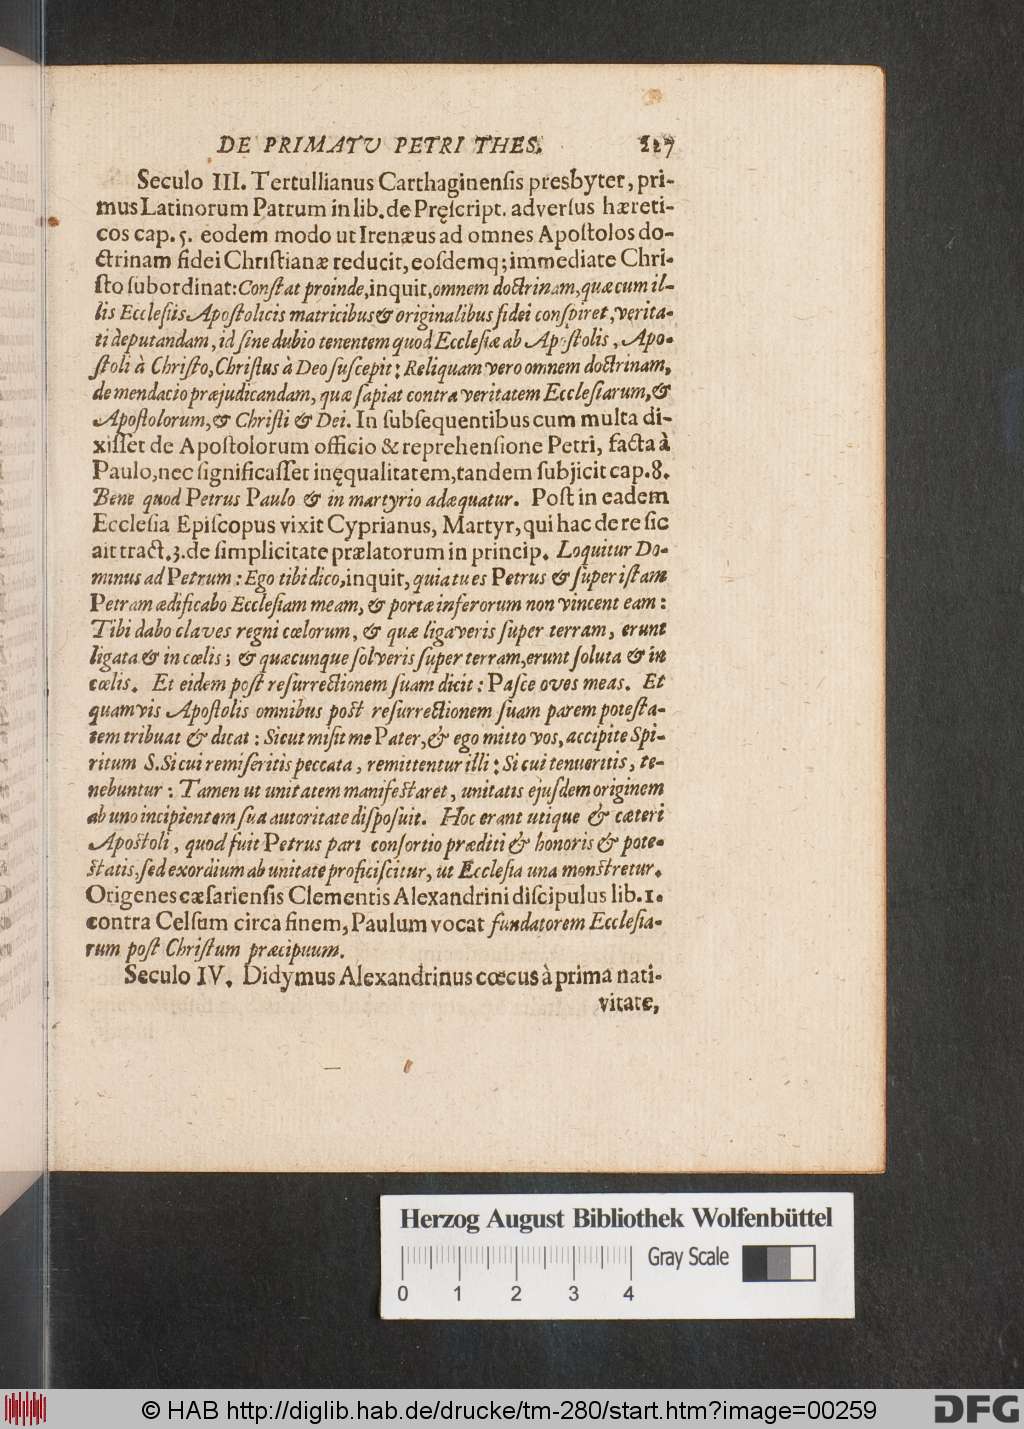 DE PRIMATU PETRI THES. 227
Seculo III. Tertullianus Carthaginenſis presbyter, pri-
mus Latinorum Patrum in lib. de Pręſcript. adverſus hæreti-
cos cap. 5. eodem modo ut Irenæus ad omnes Apoſtolos do-
ctrinam fidei Chriſtianæ reducit, eoſdemq; immediate Chri-
ſto ſubordinat: Conſtat proinde, inquit, omnem doctrinam, quæ cum il-
lis Eccleſiis Apoſtolicis matricibus & originalibus fidei conſpiret, verita-
ti deputandam, id ſine dubio tenentem quod Eccleſiæ ab Apoſtolis, Apo-
ſtoli à Chriſto, Chriſtus à Deo ſuſcepit: Reliquam vero omnem doctrinam,
de mendacio præjudicandam, quæ ſapiat contra veritatem Eccleſiarum, &
Apoſtolorum, & Chriſti & Dei. In ſubſequentibus cum multa di-
xiſſet de Apoſtolorum officio & reprehenſione Petri, facta à
Paulo, nec ſignificaſſet inęqualitatem, tandem ſubjicit cap. 8.
Bene quod Petrus Paulo & in martyrio adæquatur. Poſt in eadem
Eccleſia Epiſcopus vixit Cyprianus, Martyr, qui hac de re ſic
ait tract. 3. de ſimplicitate prælatorum in princip. Loquitur Do-
minus ad Petrum: Ego tibi dico, inquit, quia tu es Petrus & ſuper iſtam
Petram ædificabo Eccleſiam meam, & portæ inferorum non vincent eam:
Tibi dabo claves regni cœlorum, & quæ ligaveris ſuper terram, erunt
ligata & in cœlis; & quæcunque ſolveris ſuper terram, erunt ſoluta & in
cœlis. Et eidem poſt reſurrectionem ſuam dicit: Paſce oves meas. Et
quamvis Apoſtolis omnibus poſt reſurrectionem ſuam parem poteſta-
tem tribuat & dicat: Sicut miſit me Pater, & ego mitto vos, accipite Spi-
ritum S. Si cui remiſeritis peccata, remittentur illi: Si cui tenueritis, te-
nebuntur: Tamen ut unitatem manifeſtaret, unitatis ejuſdem originem
ab uno incipientem ſua autoritate diſpoſuit. Hoc erant utique & cæteri
Apoſtoli, quod fuit Petrus pari conſortio præditi & honoris & pote-
ſtatis, ſed exordium ab unitate proficiſcitur, ut Eccleſia una monſtretur.
Origenes cæſarienſis Clementis Alexandrini diſcipulus lib. 1.
contra Celſum circa finem, Paulum vocat fundatorem Eccleſia-
rum poſt Chriſtum præcipuum.
Seculo IV. Didymus Alexandrinus cœcus à prima nati-
vitate,
Herzog August Bibliothek Wolfenbüttel
Gray Scale
0 1 2 3 4
© HAB http://diglib.hab.de/drucke/tm-280/start.htm?image=00259
DFG